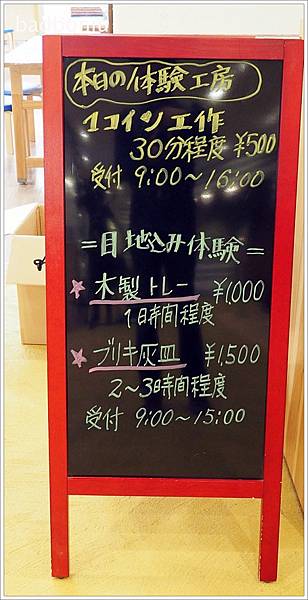 本日の体験工房
1コイン工作
30分程度 ¥500
受付 9:00～16:00
=目地込み体験=
★木製トレー ¥1,000
1日時間程度
★ブリキ灰皿 ¥1,500
2～3時間程度
受付 9:00～15:00